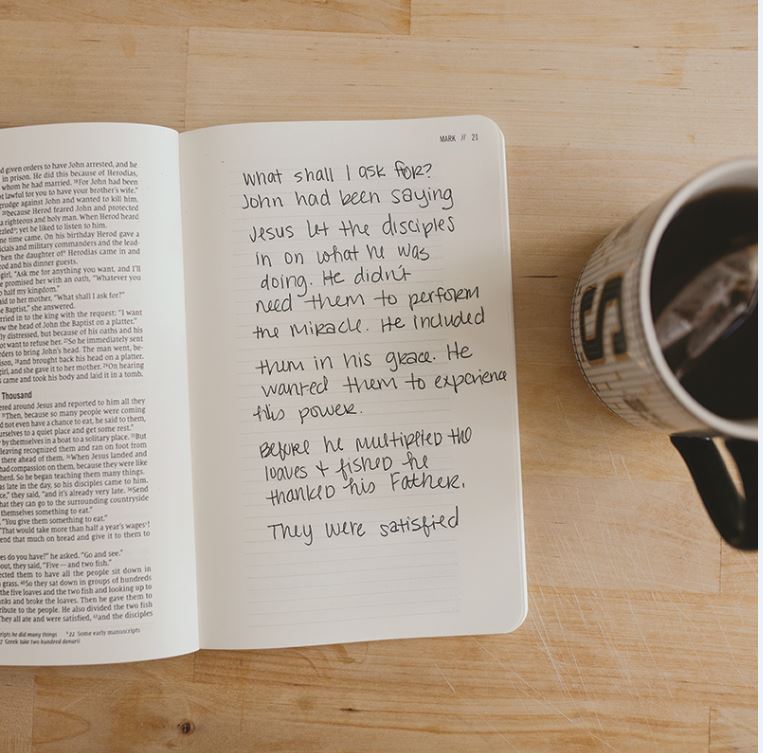 d given orders to have John arrested, and he
in prison. He did this because of Herodias,
whom he had married. 18For John had been
t lawful for you to have your brother's wife."
grudge against John and wanted to kill him.
20because Herod feared John and protected
a righteous and holy man. When Herod heard
zzled; yet he liked to listen to him.
ne time came. On his birthday Herod gave a
icials and military commanders and the lead-
hen the daughter of Herodias came in and
od and his dinner guests.
girl, "Ask me for anything you want, and I'll
e promised her with an oath, "Whatever you
o half my kingdom."
aid to her mother, "What shall I ask for?"
e Baptist," she answered.
rried in to the king with the request: "I want
ow the head of John the Baptist on a platter."
ly distressed, but because of his oaths and his
ot want to refuse her. 27So he immediately sent
ders to bring John's head. The man went, be-
ison, 28and brought back his head on a platter.
girl, and she gave it to her mother. 29On hearing
s came and took his body and laid it in a tomb.
Thousand
ered around Jesus and reported to him all they
31Then, because so many people were coming
d not even have a chance to eat, he said to them,
urselves to a quiet place and get some rest."
by themselves in a boat to a solitary place. 33But
leaving recognized them and ran on foot from
there ahead of them. 34When Jesus landed and
had compassion on them, because they were like
herd. So he began teaching them many things.
as late in the day, so his disciples came to him.
ce," they said, "and it's already very late. 36Send
hat they can go to the surrounding countryside
themselves something to eat."
"You give them something to eat."
"That would take more than half a year's wages!
end that much on bread and give it to them to
es do you have?" he asked. "Go and see."
out, they said, "Five—and two fish."
ected them to have all the people sit down in
grass. 40So they sat down in groups of hundreds
the five loaves and the two fish and looking up to
nks and broke the loaves. Then he gave them to
tribute to the people. He also divided the two fish
They all ate and were satisfied, 43and the disciples
cripts he did many things 22 Some early manuscripts
Greek take two hundred denarii
MARK // 21
What shall I ask for?
John had been saying
Jesus let the disciples
in on what he was
doing. He didn't
need them to perform
the miracle. He included
them in his grace. He
wanted them to experience
this power.
Before he multipled the
loaves + fished he
thanked his Father.
They were satisfied
S